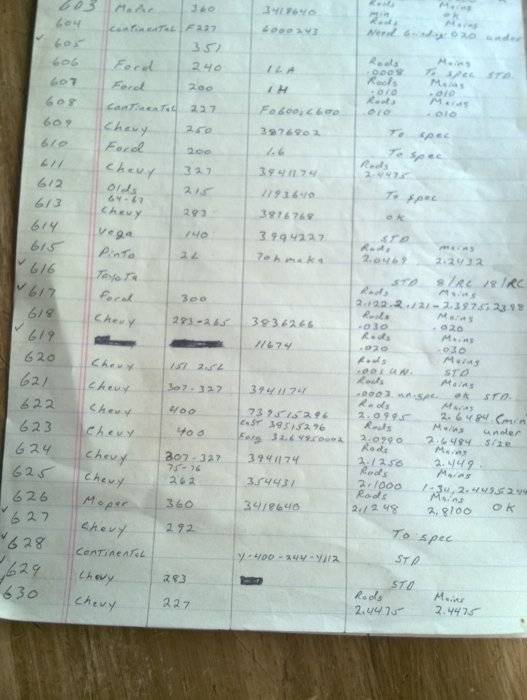 603 Mopar 360 3418640 Rods Mains
min OK
604 Continental F227 6000243 Rods Mains
Need Grinding .020 under
605 351
606 Ford 240 1LA Rods Mains
.0008 To spec STD.
607 Ford 200 1H Rods Mains
.010 .010
608 Continental 227 F0600, C600 Rods Mains
.010 .010
609 Chevy 250 3876802 To spec
610 Ford 200 1.6 To spec
611 Chevy 327 3941174 Rods
2.4475
612 Olds 215 1193640 To spec
613 64-67
Chevy 283 3876768 OK
614 Vega 140 3994227 STD
615 Pinto 2L Rods Mains
2.0469 2.2432
616 Toyota STD 8/RC 18/RC
617 Ford 300 Rods Mains
2.122-2.121-2.3975,2398
618 Chevy 283-265 3836266 Rods Mains
.030 .020
619 11674 Rods Mains
.020 .030
620 Chevy 151 2.5L Rods Mains
.001 UN. STD
621 Chevy 307-327 3941174 Rods Mains
.0003 un.spec OK STD.
622 Chevy 400 739515296 Rods Mains
2.0995 2.6484 (min
623 Chevy 400 Cast 39515296 Rods Mains under
Forg 3264950002 2.0990 2.6484 size
624 Chevy 307-327 3941174 Rods Mains
2.1250 2.449
625 Chevy 75-76 262 354431 Rods Mains
2.1000
626 Mopar 360 3418640 Rods Mains
2.1248 2.8100 OK
627 Chevy 292 To spec
628 Continental Y-400-244-Y112 STD
629 Chevy 283 STD
630 Chevy 227 Rods Mains
2.4475 2.4475